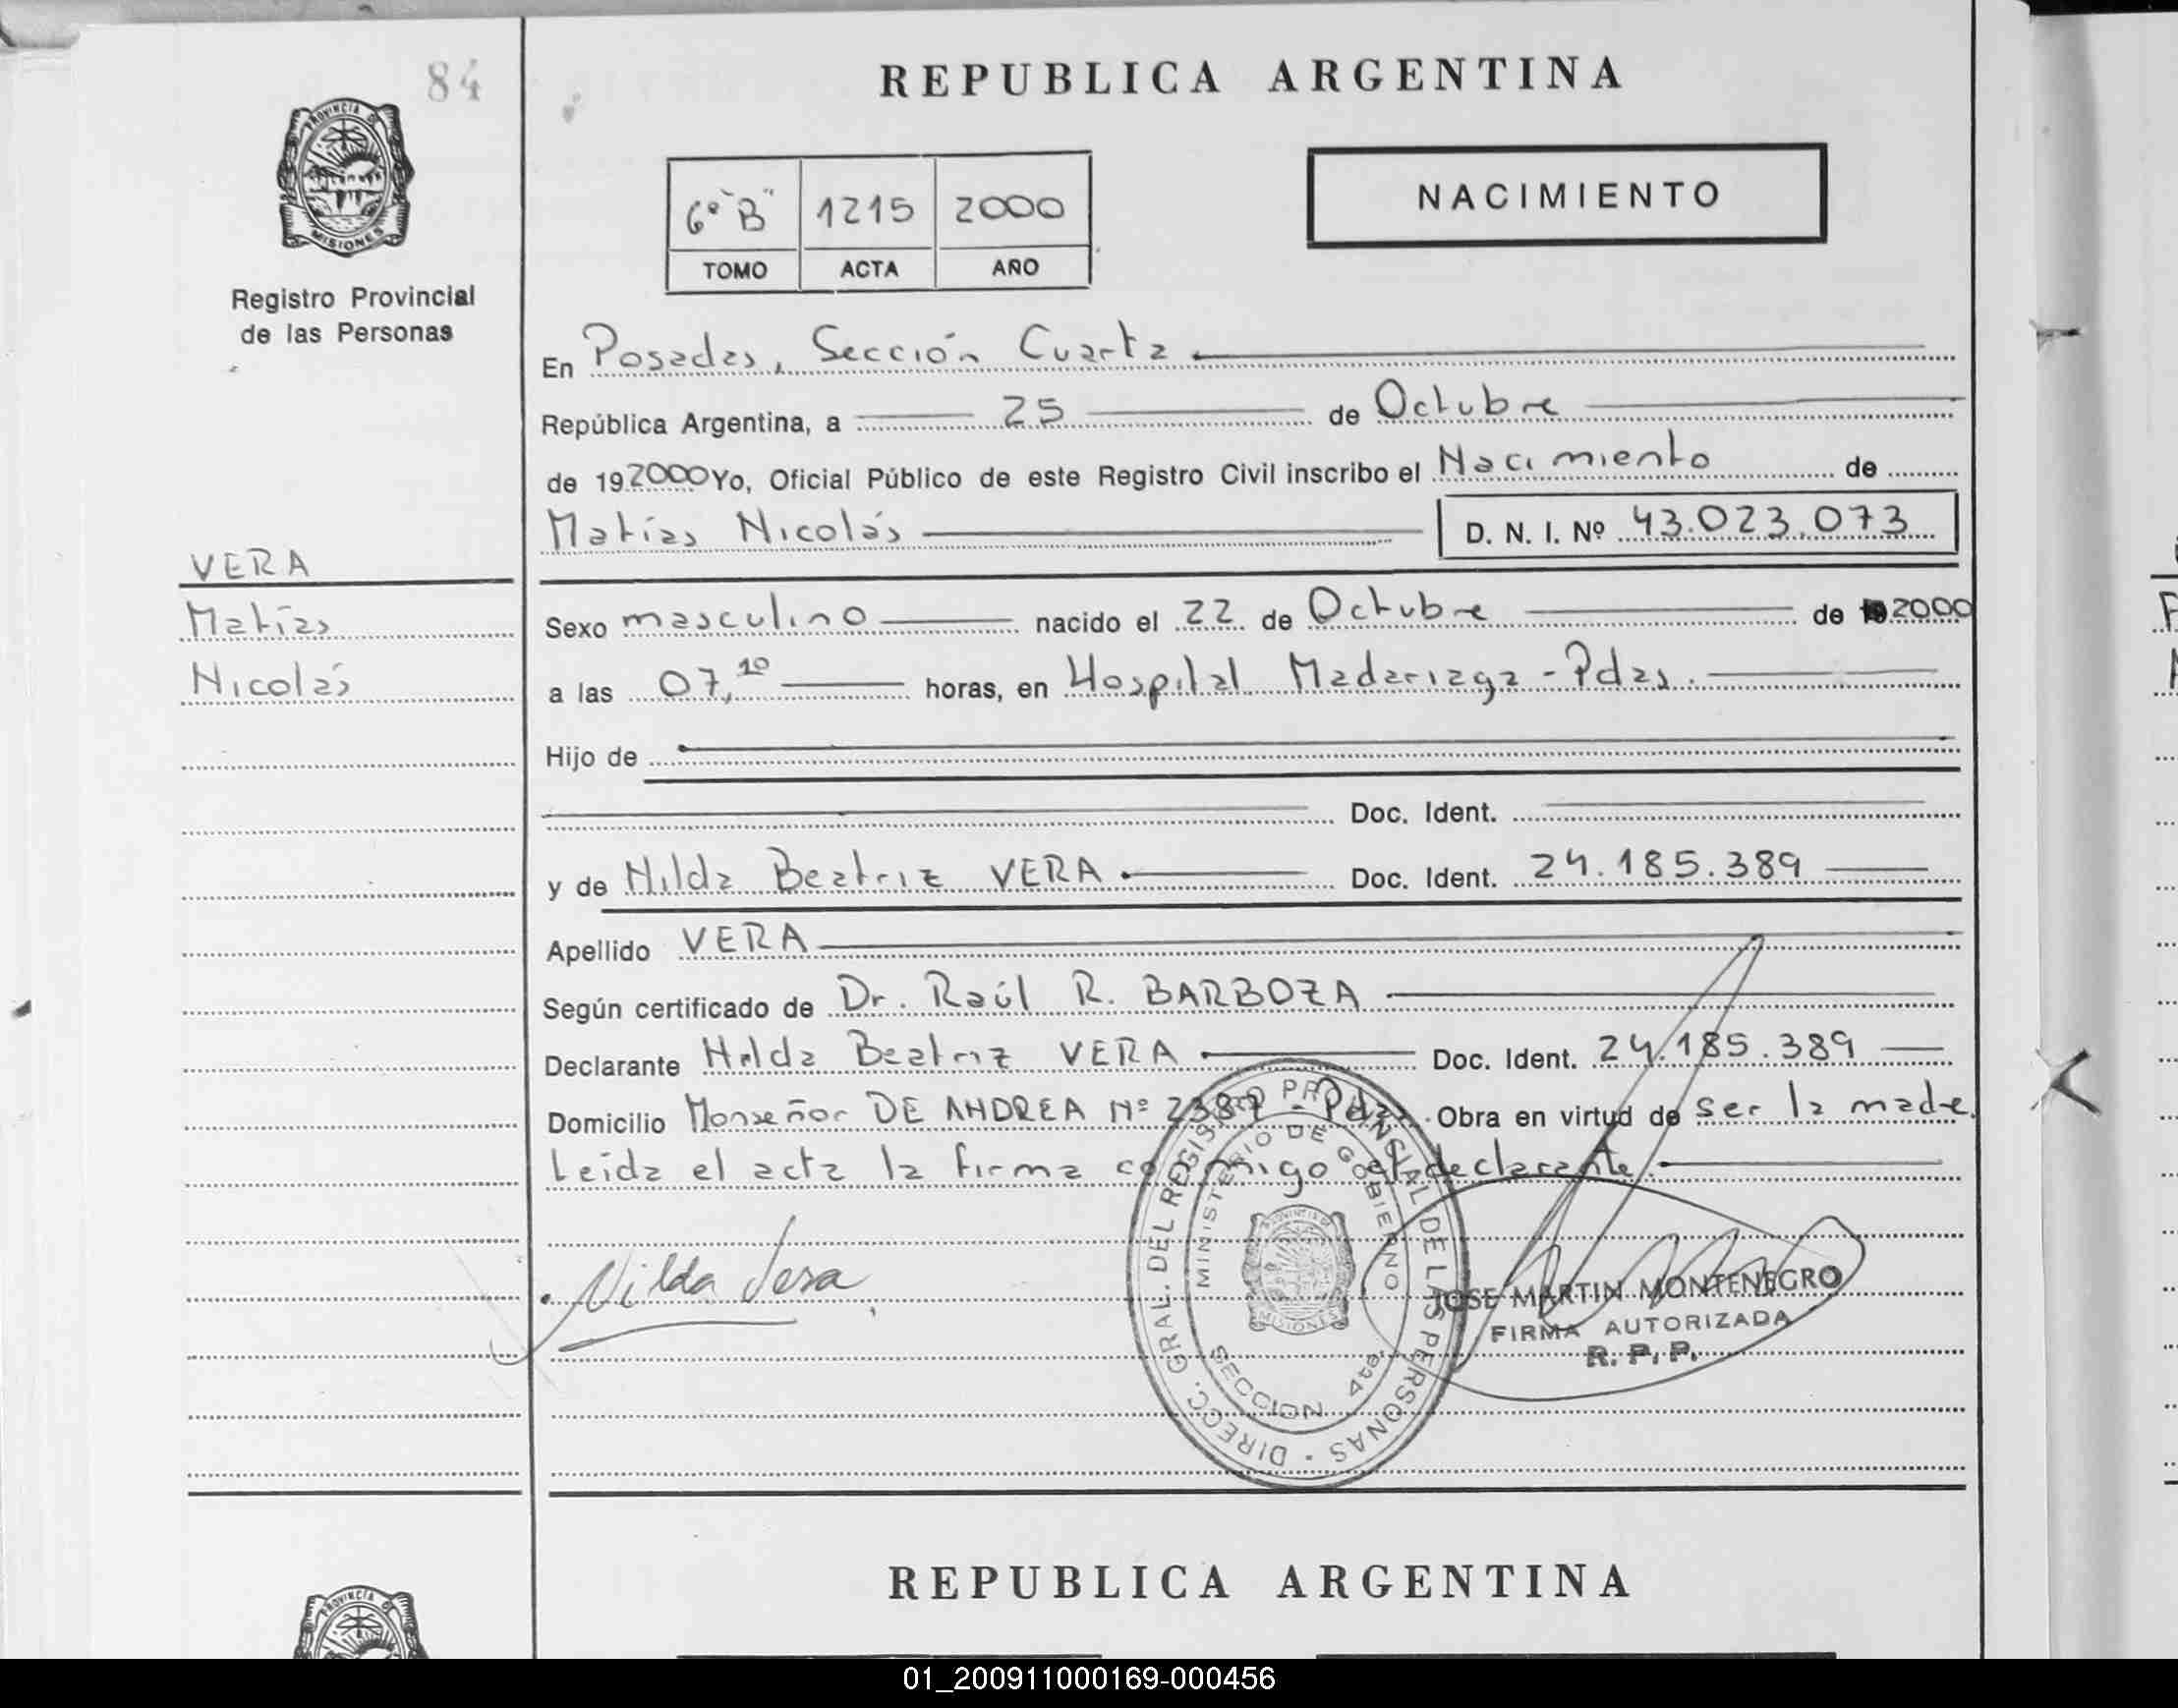 84
PROVINCIA DE
MISIONES
Registro Provincial
de las Personas
VERA
Matías
Nicolás
REPUBLICA ARGENTINA
6º "B" 1215 2000
TOMO ACTA AÑO
NACIMIENTO
En Posadas, Sección Cuarta
República Argentina, a 25 de Octubre
de 19 2000 Yo, Oficial Público de este Registro Civil inscribo el Nacimiento de
Matías Nicolás D. N. I. Nº 43.023.073
Sexo masculino nacido el 22 de Octubre de 2000
a las 07,10 horas, en Hospital Madariaga - Pdas.
Hijo de
Doc. Ident.
y de Nilda Beatriz VERA Doc. Ident. 24.185.389
Apellido VERA
Según certificado de Dr. Raúl R. BARBOZA
Declarante Nilda Beatriz VERA Doc. Ident. 24.185.389
Domicilio Monseñor DE ANDREA Nº - Pdas. Obra en virtud de ser la madre.
Leída el acta la firma conmigo el declarante.
Nilda Vera
DIRECC. GRAL. DEL REGISTRO PROVINCIAL DE LAS PERSONAS
MINISTERIO DE GOBIERNO
SECCION 4ta.
PROVINCIA DE
MISIONES
JOSE MARTIN MONTENEGRO
FIRMA AUTORIZADA
R. P. P.
REPUBLICA ARGENTINA
PROVINCIA DE
01_200911000169-000456